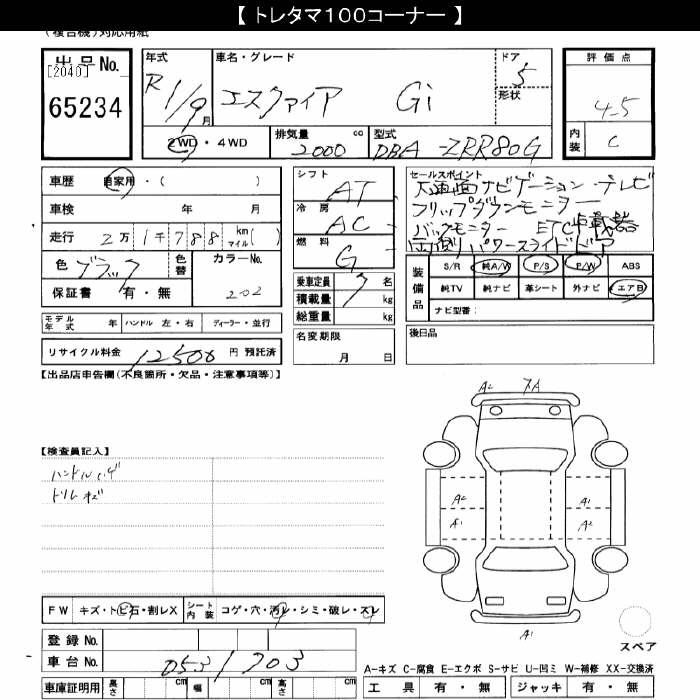 【 トレタマ100コーナー 】
(複合機)対応用紙
出品No.
[2040]
65234
年式
R1/9月
車名・グレード
エスクァイア Gi
ドア
5
形状
2WD・4WD
排気量 cc
2000
型式
DBA-ZRR80G
評価点
4.5
内装
C
車歴 自家用・( )
車検 年 月
走行 2万1千788 km マイル( )
色 ブラック 色替
カラーNo.
202
保証書 有・無
シフト
AT
冷房
AC
燃料
G
乗車定員 7 名
積載量 kg
総重量 kg
セールスポイント
大画面ナビゲーション テレビ
フリップダウンモニター
バックモニター ETC車載器
両側パワースライドドア
装備品
S/R 純A/W P/S P/W ABS
純TV 純ナビ 革シート 外ナビ エアB
ナビ型番:
モデル年式 年 ハンドル 左・右 ディーラー・並行
リサイクル料金 12500 円 預託済
名変期限
月 日
後日品
【出品店申告欄(不良箇所・欠品・注意事項等)】
【検査員記入】
ハンドルハゲ
トリムキズ
A2 XA
A2 A1
A1 A2
A1
スペア
FW キズ・トビ石・割レX
シート内装 コゲ・穴・汚レ・シミ・破レ・スレ
登録No.
車台No. 0531703
車庫証明用 長さ cm 幅 cm 高さ cm
A-キズ C-腐食 E-エクボ S-サビ U-凹ミ W-補修 XX-交換済
工具 有・無 ジャッキ 有・無